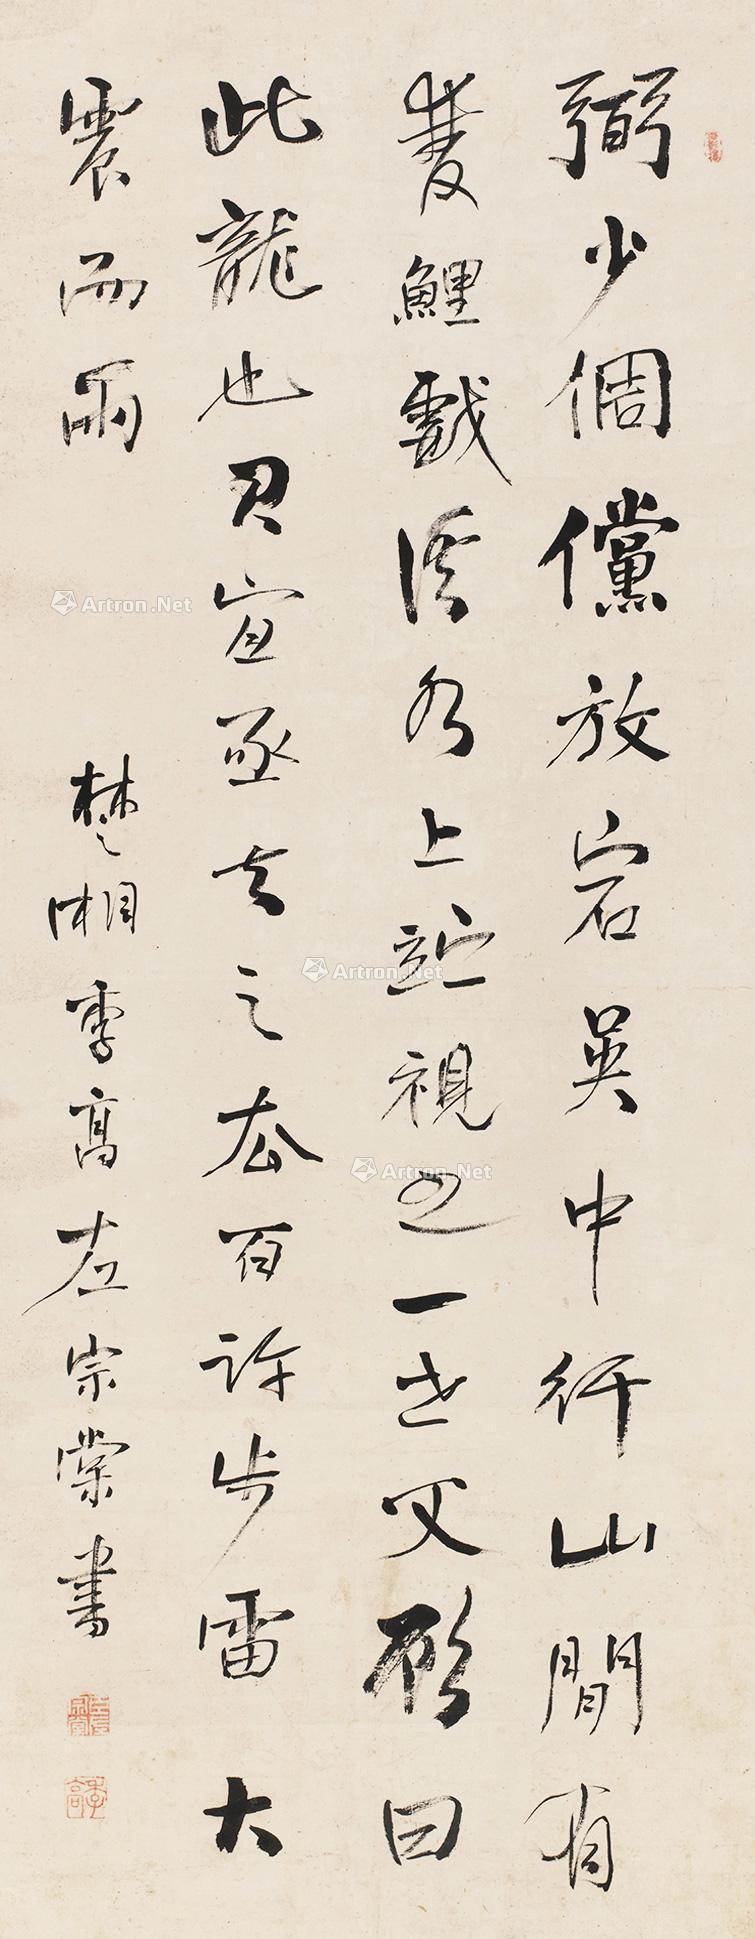 弼少倜儻放宕吳中行山間有
雙鯉戲溪水上竚視之一老父顧曰
此龍也君宜亟去之厺百許步雷大
震而雨
楚湘季高左宗棠書
季高
Artron.Net
Artron.Net
Artron.Net